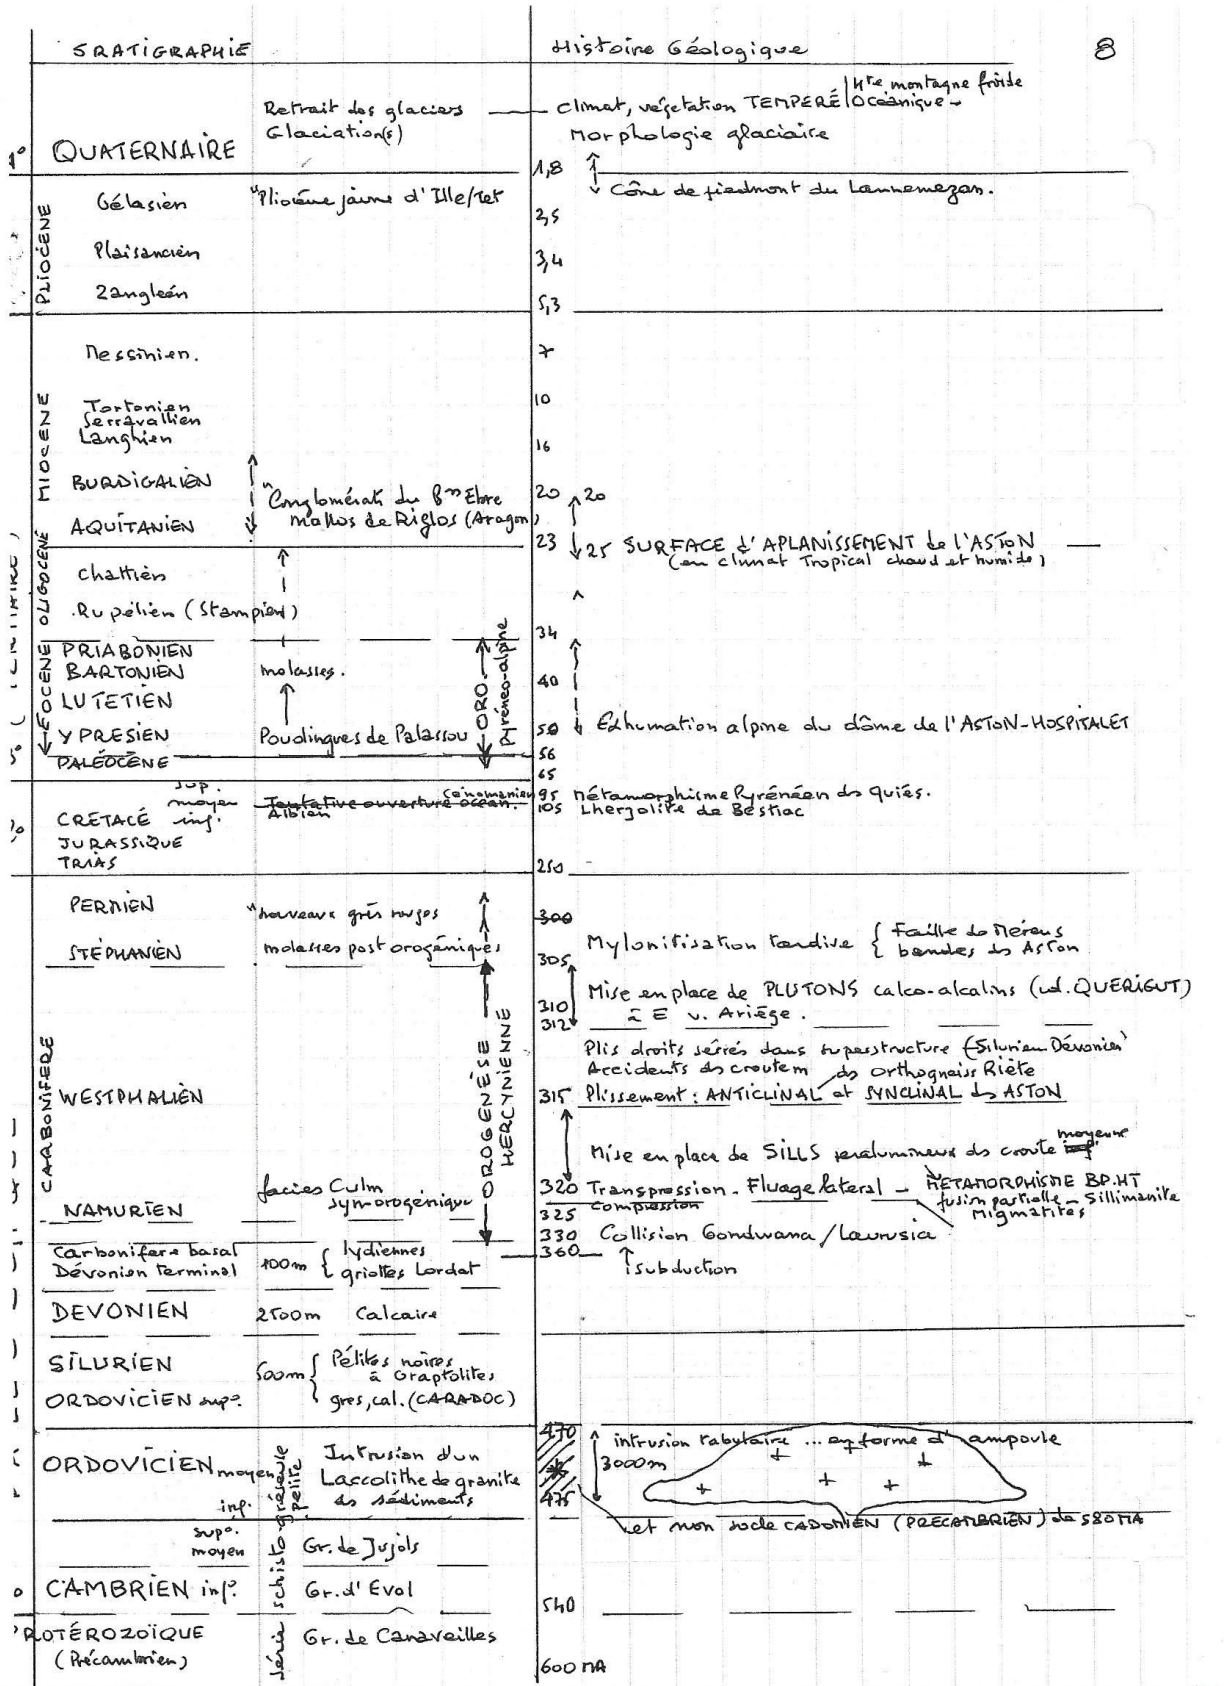 SRATIGRAPHIE Histoire Géologique 8
Retrait des glaciers climat, végétation TEMPERÉ Hte montagne froide
Océanique
Glaciation(s) Morphologie glaciaire
QUATERNAIRE
1,8
Cône de piedmont du Lannemezan.
PLIOCÈNE
Gélasien "Pliocène jaune d'Ille/Tet
2,5
Plaisancien 3,4
Zangléen 5,3
MIOCENE
Messinien. 7
Tortonien 10
Serravallien
Langhien 16
BURDIGALIÈN 20 20
"Conglomérats du Bin Ebre
mallos de Riglos (Aragon)
AQUÎTANIEN
23 25 SURFACE d'APLANISSEMENT de l'ASTON
(en climat Tropical chaud et humide)
OLIGOCENE
Chattien
Rupélien (Stampien)
34
EOCENE
PRIABONIEN
BARTONIEN molasses. 40
LUTETIEN
YPRESIEN Poudingues de Palassou 50 Exhumation alpine du dôme de l'ASTON-HOSPITALET
ORO. Pyrénéo-alpine
56
PALÉOCÈNE
65
sup. Cénomanien 95 Métamorphisme Pyrénéen ds quiés.
moyen Tentative ouverture océan. 105 Lherzolite de Bestiac
CRETACÉ inf. Albien
JURASSIQUE
TRIAS 250
PERMIEN "nouveaux grès rouges 300
STÉPHANIEN molasses post orogéniques Mylonitisation tardive { Faille de Mérens
bandes ds Aston
305
310 Mise en place de PLUTONS calco-alcalins (id. QUERIGUT)
312 à E v. Ariège.
Plis droits serrés dans superstructure (Silurien Dévonien)
Accidents ds croute m ds orthogneiss Riète
CARBONIFERE
WESTPHALIÈN 315 Plissement : ANTICLINAL et SYNCLINAL ds ASTON
OROGENÈSE HERCYNIENNE
Mise en place de SILLS peralumineux ds croute moyenne inf.
320 Transpression - Fluage lateral - METAMORPHISME BP.HT
facies Culm
symorogénique compression fusion partielle - Sillimanite
Migmatites
NAMURIEN 325
330 Collision Gondwana/Laurusia
Carbonifere basal 360 subduction
Dévonien terminal 100m { lydiennes
griottes Lordat
DEVONIEN 2500m Calcaire
SILURIEN 500m { Pélites noires
à Graptolites
ORDOVICIEN sup. gres, cal. (CARADOC)
470 intrusion tabulaire ... en forme d'ampoule
ORDOVICIEN moyen Intrusion d'un 3000m
Laccolithe de granite
inf. ds sédiments 475
et non socle CADOMIEN (PRECAMBRIEN) de 580 MA
série schisto-gréseuse pélite
sup.
moyen Gr. de Jujols
CAMBRIEN inf. Gr. d'Evol 540
PROTÉROZOÏQUE Gr. de Canaveilles
(Précambrien) 600 MA